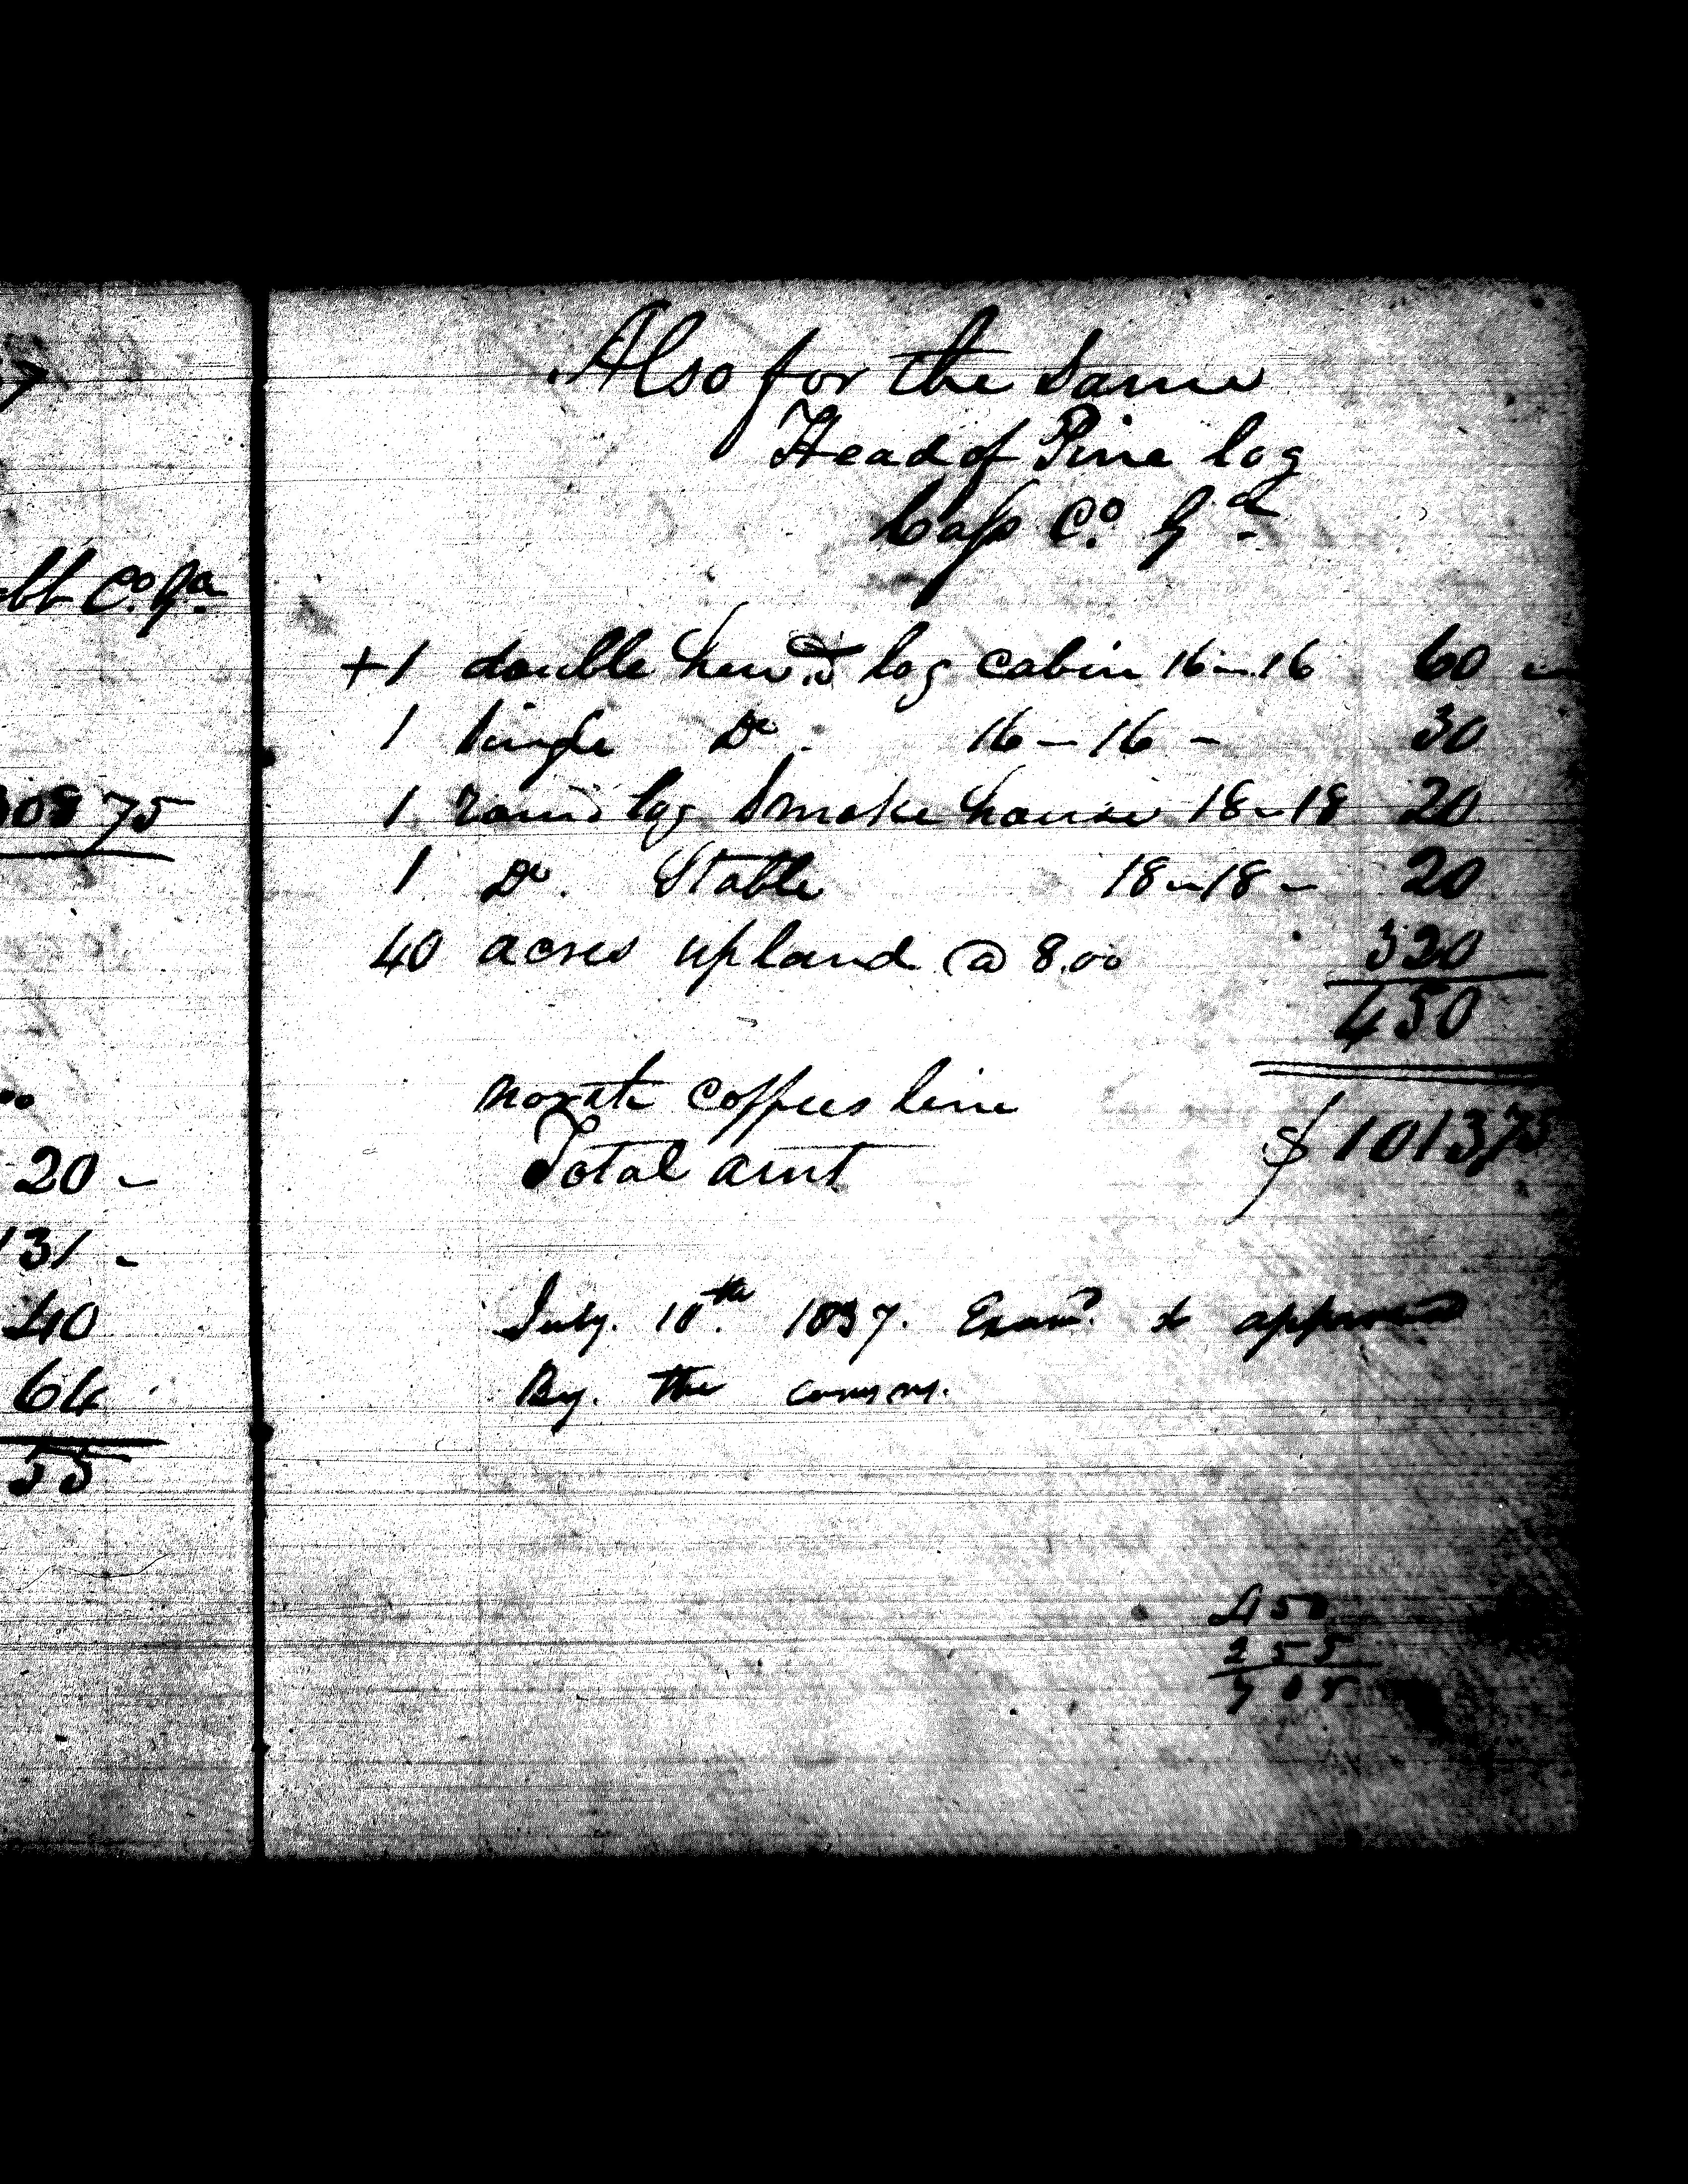 7
bb Co. Ga
308 75
00
20 -
131 -
40
64
55
Also for the Same
Head of Pine log
Cass Co. Ga
+1 double hewd log cabin 16-16 60
1 Single Do. 16-16 - 30
1 round log Smoke house 18-18 20
1 Do. Stable 18-18 - 20
40 acres upland @ 8.00 320
450
North Coffees line
Total amt $1013,75
July. 10th 1837. Examd. & approved
By. the comms.
450
255
705